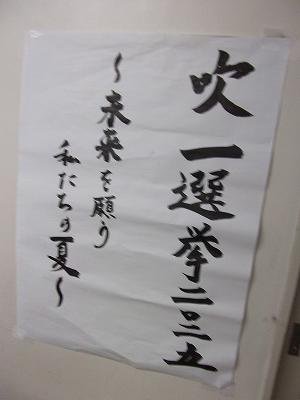 吹一選挙二〇二五
〜未来を願う
私たちの夏〜